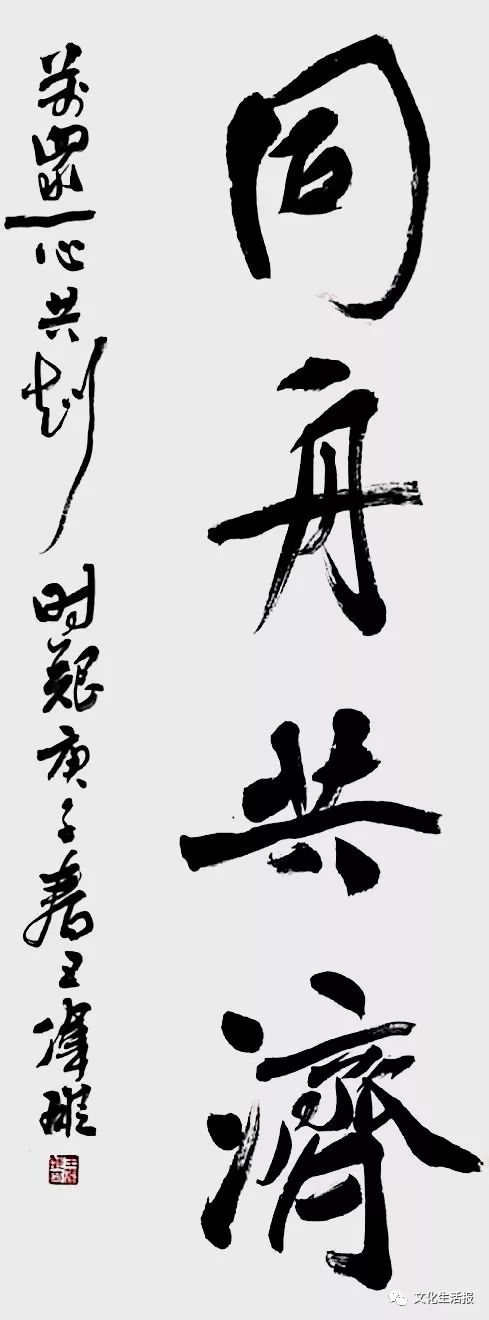 同舟共濟
萬眾一心共时艱庚子春王偉
文化生活报